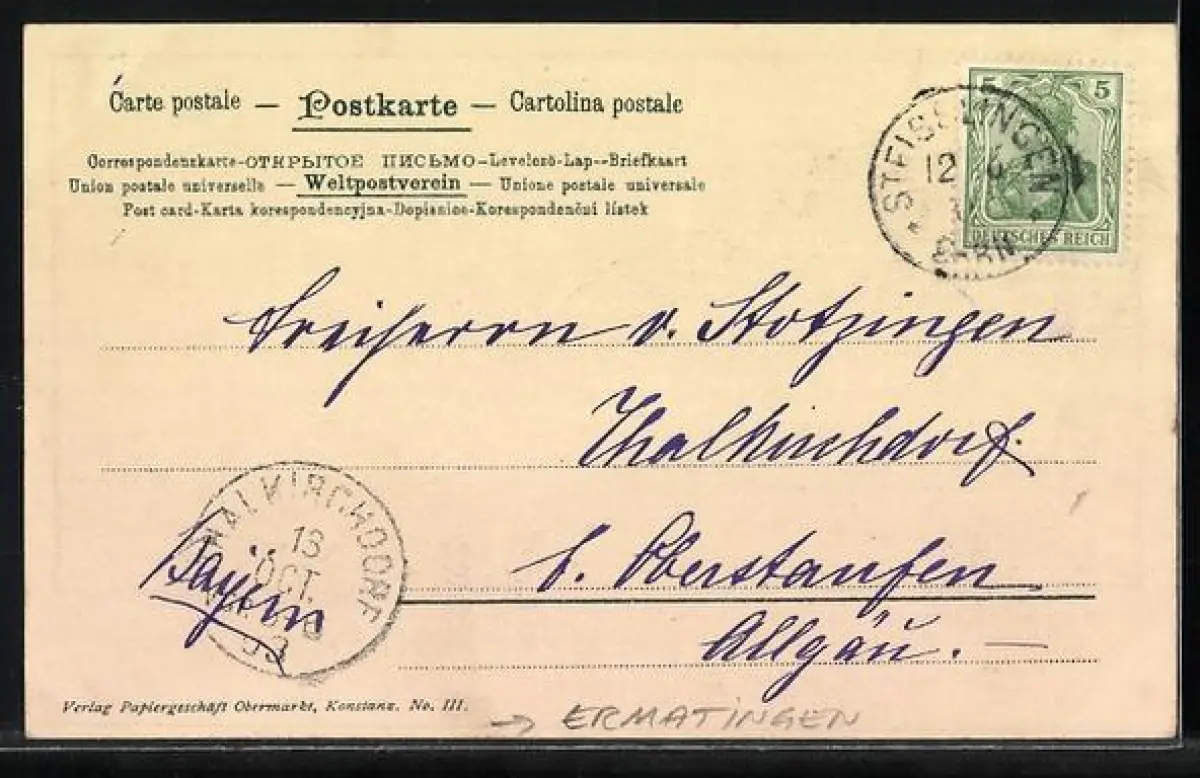 Carte postale — Postkarte — Cartolina postale
Correspondenzkarte-ОТКРЫТОЕ ПИСЬМО-Levelező-Lap--Briefkaart
Union postale universelle — Weltpostverein — Unione postale universale
Post card-Karta korespondencyjna-Dopisnice-Korespondenční lístek
5 5
DEUTSCHES REICH
STEISSLINGEN
12
Freiherrn v. Stotzingen
Thalkirchdorf.
b. Oberstaufen
Allgäu. —
Bayern
THALKIRCHDORF
13
OCT.
03
Verlag Papiergeschäft Obermarkt, Konstanz. No. III.
→ ERMATINGEN